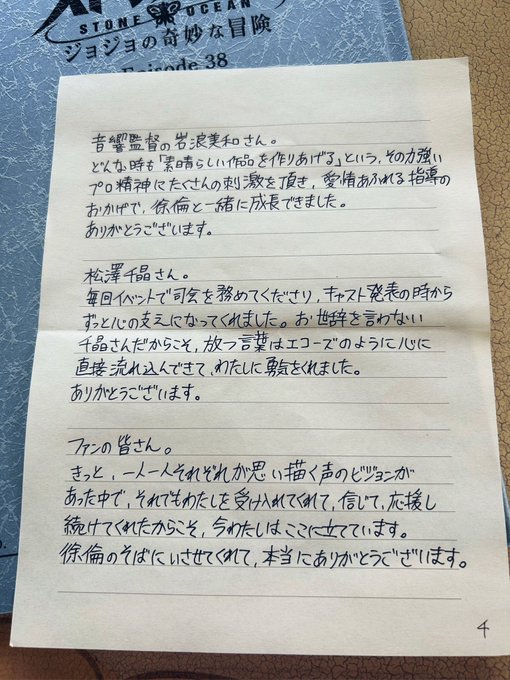 STONE OCEAN
ジョジョの奇妙な冒険
Episode 38
音響監督の岩浪美和さん。
どんな時も「素晴らしい作品を作りあげる」という、その力強い
プロ精神にたくさんの刺激を頂き、愛情あふれる指導の
おかげで、徐倫と一緒に成長できました。
ありがとうございます。
松澤千晶さん。
毎回イベントで司会を務めてくださり、キャスト発表の時から
ずっと心の支えになってくれました。お世辞を言わない
千晶さんだからこそ、放つ言葉はエコーズのように心に
直接流れ込んできて、わたしに勇気をくれました。
ありがとうございます。
ファンの皆さん。
きっと、一人一人それぞれが思い描く声のビジョンが
あった中で、それでもわたしを受け入れてくれて、信じて、応援し
続けてくれたからこそ、今わたしはここに立てています。
徐倫のそばにいさせてくれて、本当にありがとうございます。
4